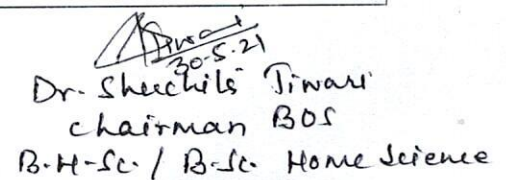 Tiwari
30-5-21
Dr. Shuchita Tiwari
Chairman BOS
B.H-Sc. / B.Sc. Home Science